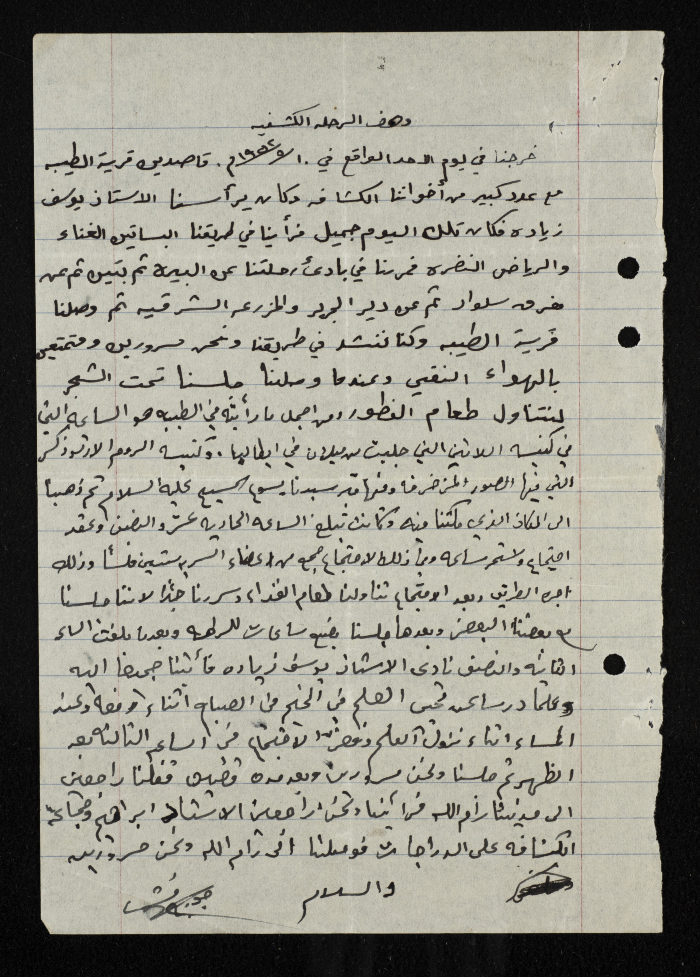 وصف الرحلة الكشفيه
خرجنا في يوم الاحد الواقع في ١٠ ١٩٥٢م. قاصدين قرية الطيبه
مع عدد كبير من أخواننا الكشافه وكان يرأسنا الاستاذ يوسف
زياده فكان ذلك اليوم جميل فرأينا في طريقنا البساتين الغناء
والرياض النضره فمررنا في بادئ رحلتنا عن البيره ثم بيتين ثم عن
سلواد ثم عن دير الجرير والمزرعه الشرقيه ثم وصلنا
قرية الطيبه وكنا ننشد في طريقنا ونحن مسرورين ومتمتعين
بالهواء النقي وعندما وصلنا جلسنا تحت الشجر
لنتناول طعام الفطور ومن اجمل ما رأيته في الطيبه هو الساعه التي
في كنيسه اللاتين التي جلبت من ميلان في ايطاليا. وكنيسه الروم الارثوذكس
التي فيها الصور المزخرفه وفيها سيدنا يسوع المسيح عليه السلام ثم ذهبنا
الى المكان الذي مكثنا فيه وكانت تبلغ الساعه الحاديه عشر والنصف وعقد
اجتماع واستمر ساعه وفي ذلك الاجتماع جمع من اعضاء السريه ستين فلسا وذلك
اجره الطريق وبعد الاجتماع تناولنا طعام الغداء وسررنا جدا لاننا جلسنا
مع بعضنا البعض وبعدها جلسنا بضع ساعات للراحه وبعدما بلغت الساعه
الثانيه والنصف نادى الاستاذ يوسف زياده فأتينا جميعا اليه
وعلمنا درسا عن تحيى العلم في المخيم في الصباح اثناء رفعه وعند
المساء اثناء نزول العلم الاجتماع في الساعه الثالثه بعد
الظهر ثم جلسنا ونحن مسرورين وبعد مده قفلنا راجعين
الى مدينتنا رام الله فرأينا ونحن راجعين الاستاذ ابراهيم وجماعة
الكشافه على الدراجات فوصلنا الى رام الله ونحن مسرورين
والسلام